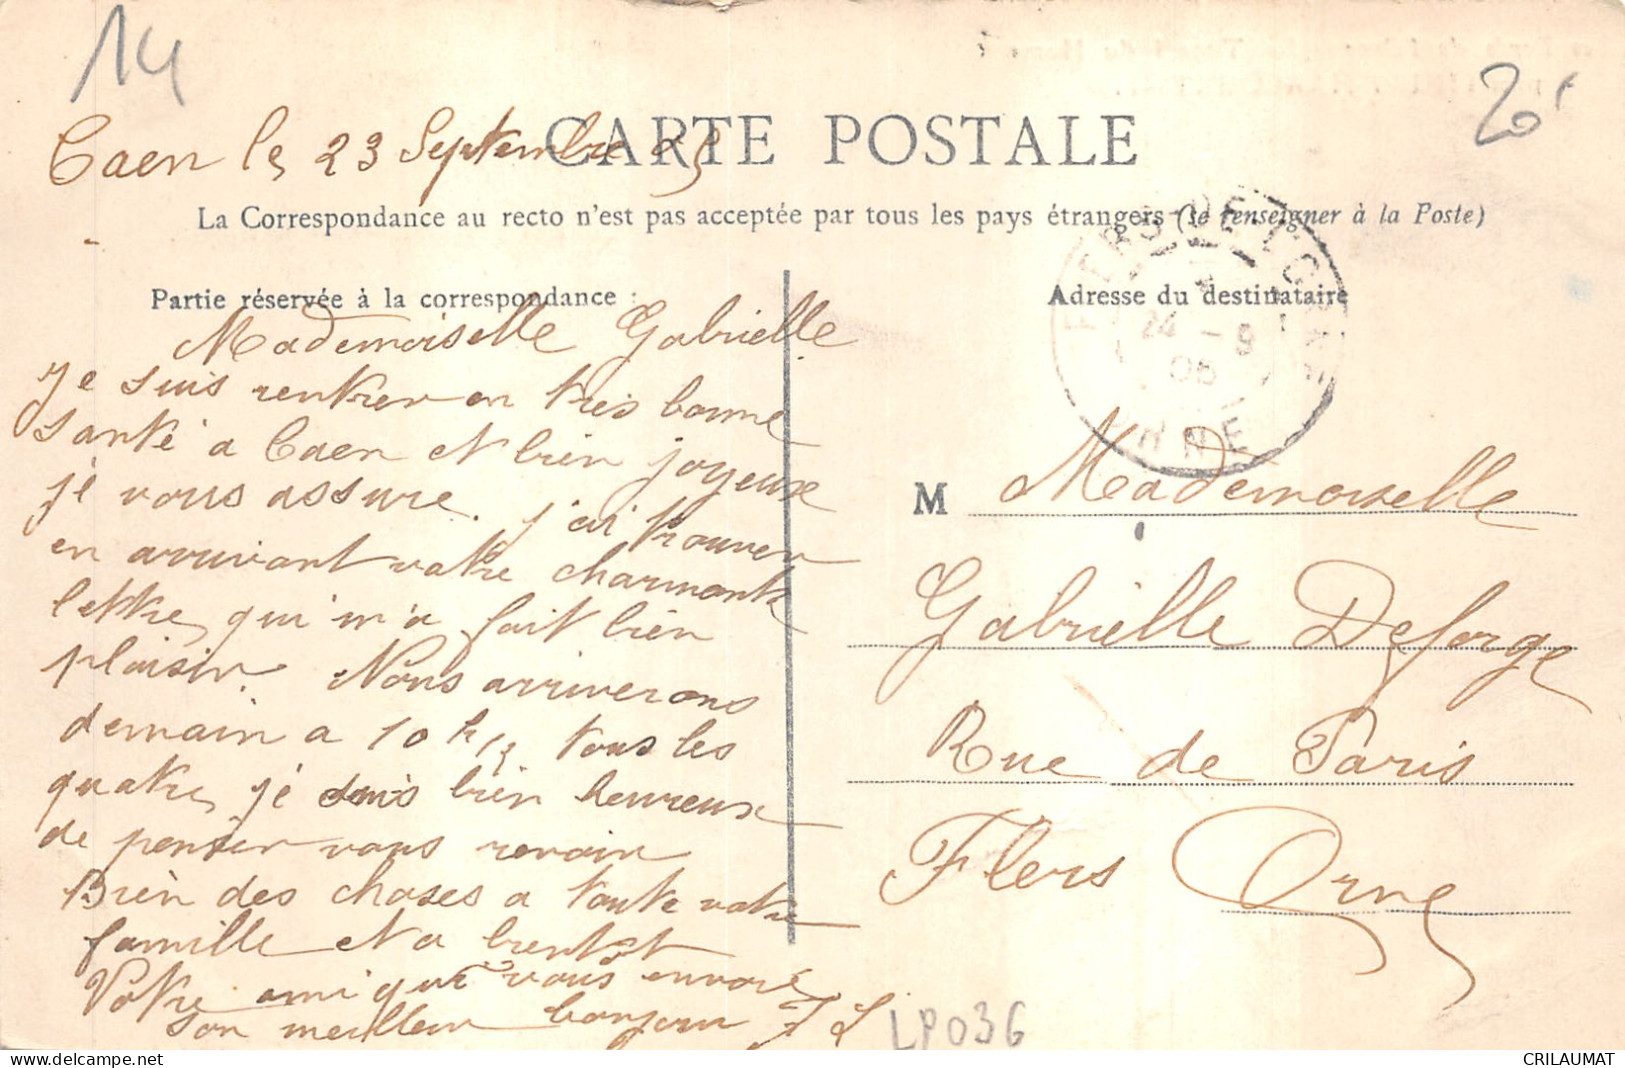 14
20
Caen le 23 Septembre 05
CARTE POSTALE
La Correspondance au recto n'est pas acceptée par tous les pays étrangers (se renseigner à la Poste)
Partie réservée à la correspondance :
Mademoiselle Gabrielle
Je suis rentrer en très bonne
santé a Caen et bien joyeux
je vous assure. j'ai trouver
en arrivant votre charmante
lettre qui m'a fait bien
plaisir. Nous arriverons
demain a 10 h tous les
quatre, je suis bien heureux
de penser vous revoir
Bien des choses a toute votre
famille et a bientot
Votre ami qui vous envoie
son meilleur bonjour
Adresse du destinataire
FLERS-DE-L'ORNE
24 - 9
05
ORNE
M Mademoiselle
Gabrielle Deforge
Rue de Paris
Flers Orne
LP036
CRILAUMAT